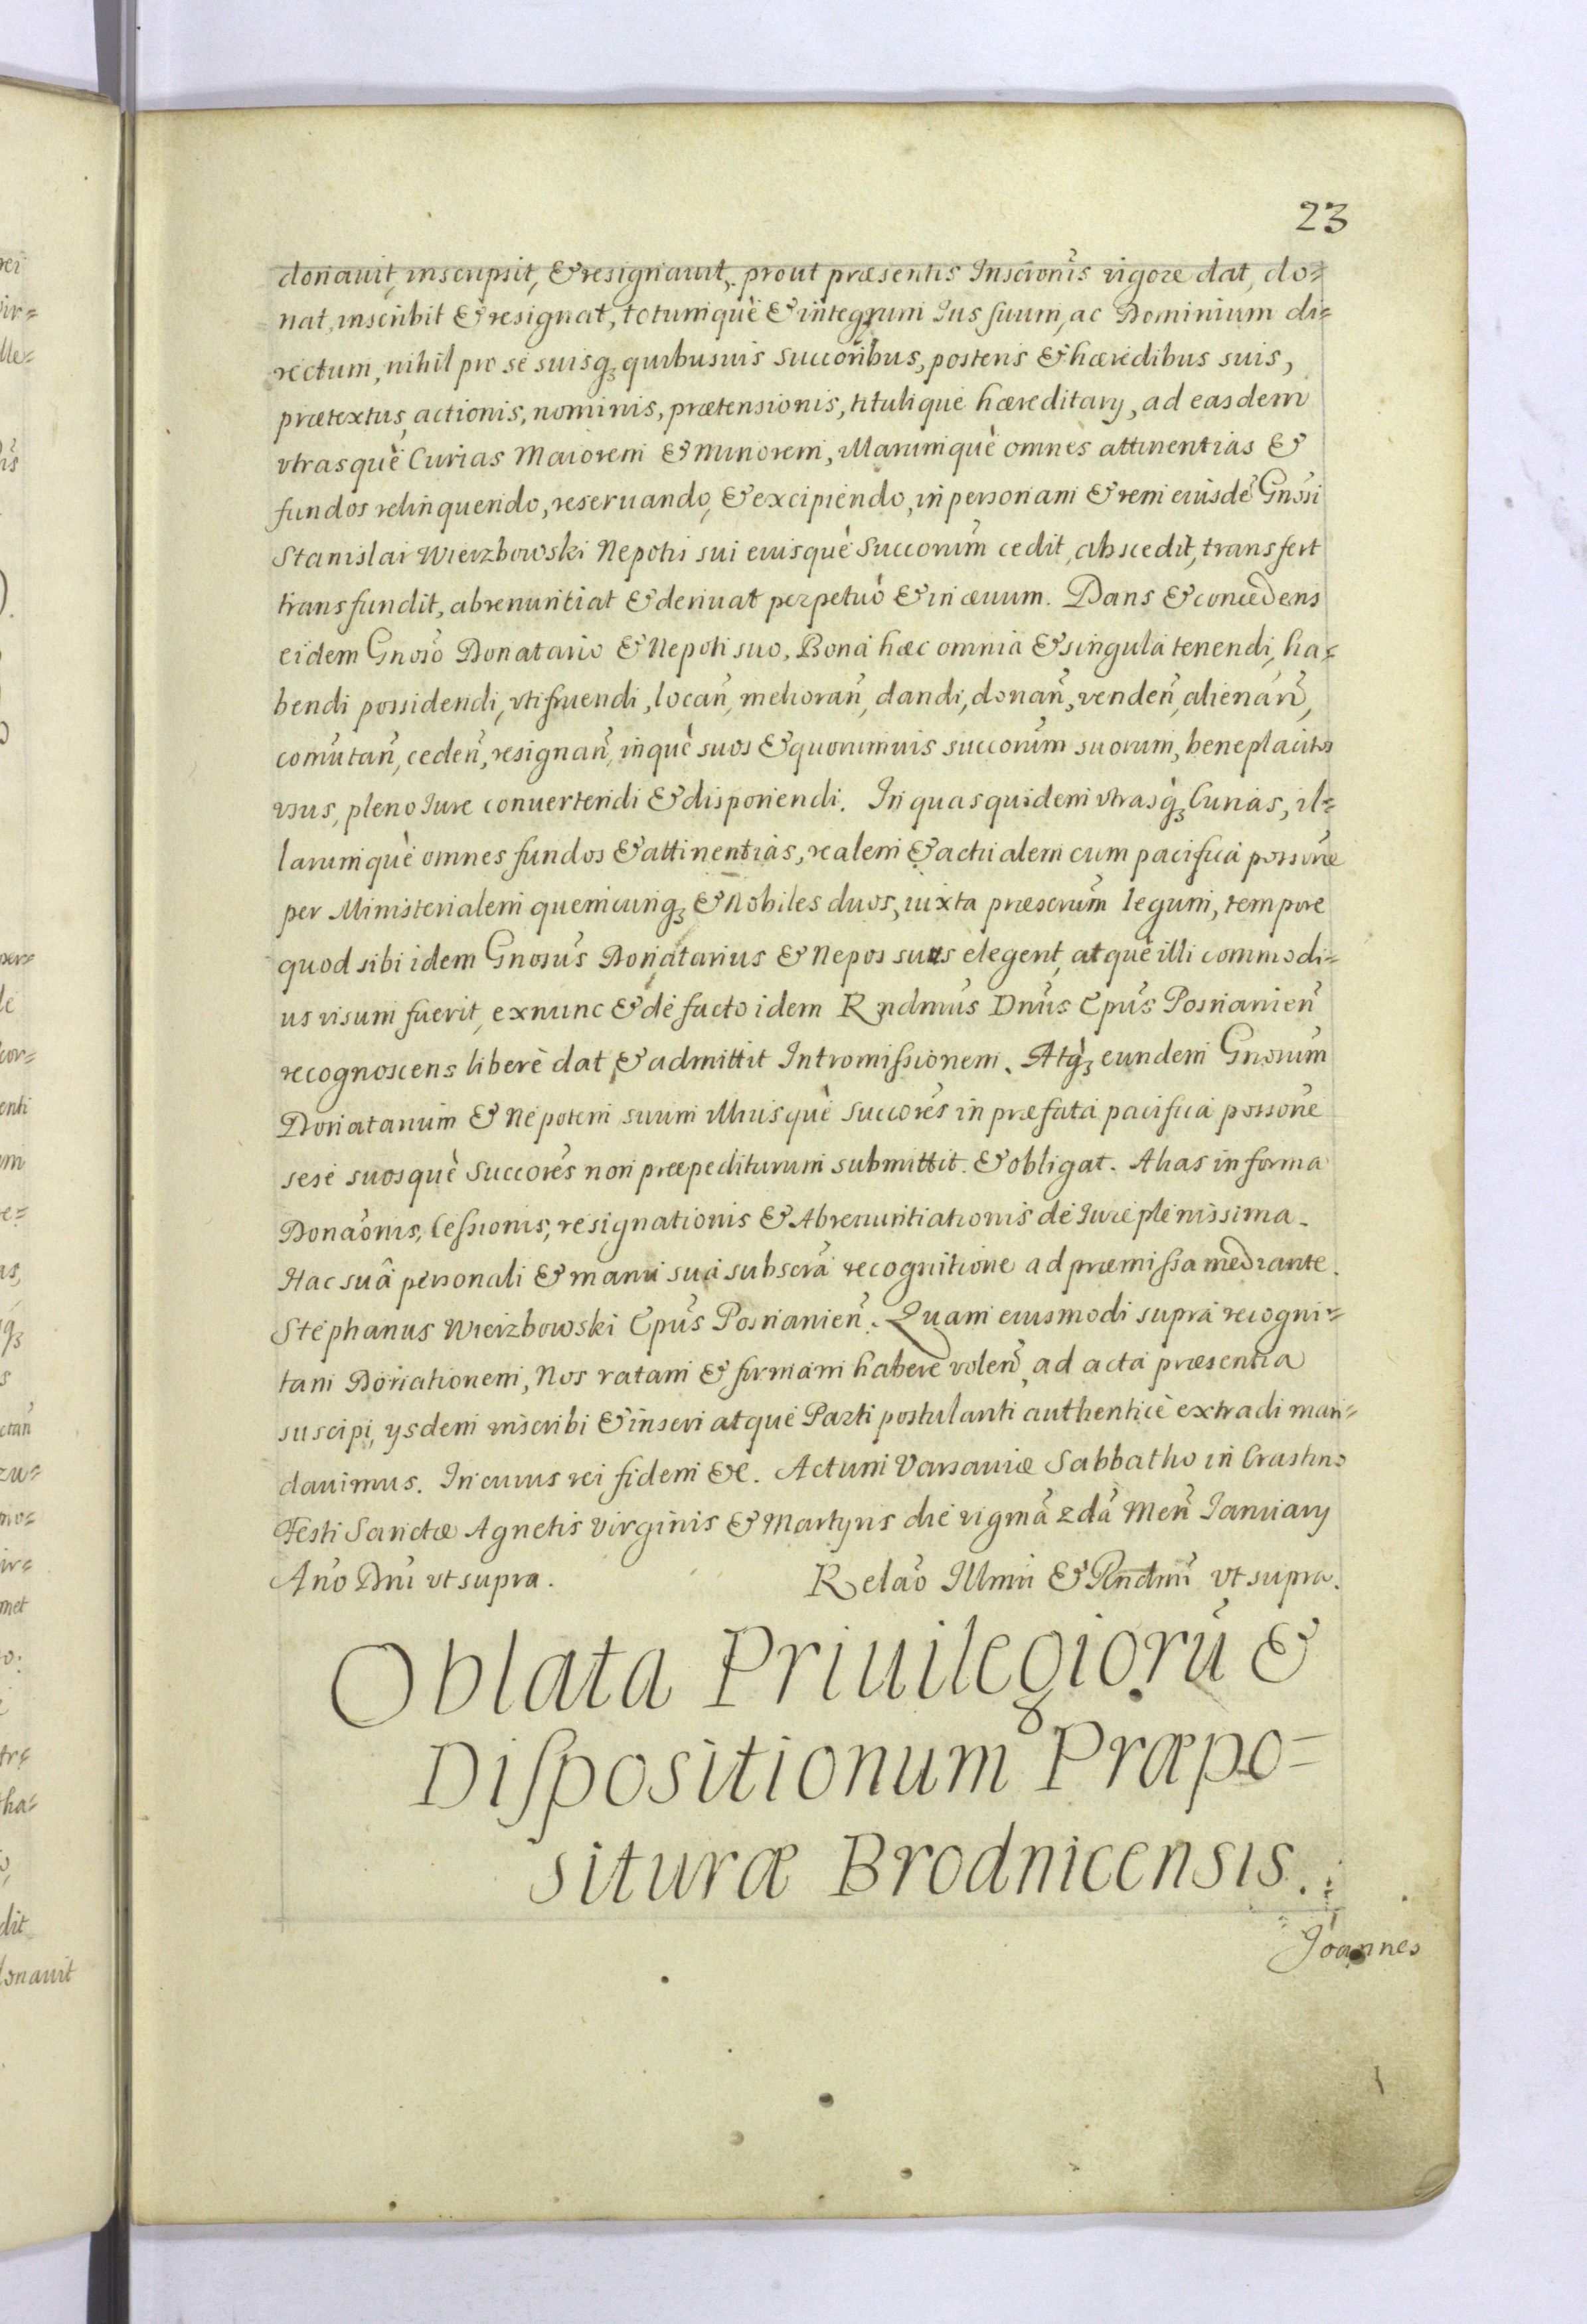 23
donauit, inscripsit, & resignauit, prout præsentis Inscrionis vigore dat, do=
nat, inscribit & resignat, totumquè & integrum Ius suum, ac Dominium di=
rectum, nihil pro se suisq; quibusuis Succoribus, posteris & hæredibus suis,
prætextus, actionis, nominis, prætensionis, titulique hæreditarij, ad easdem
vtrasquè Curias Maiorem & Minorem, illarumquè omnes attinentias &
fundos relinquendo, reseruando, & excipiendo, in personam & rem eiusdē Gnōsi
Stanislai Wierzbowski Nepotis sui eiusquè Succorum cedit, abscedit, transfert
transfundit, abrenuntiat & deriuat perpetuò & in æuum. Dans & concedens
eidem Gnoso Donatario & Nepoti suo, Bona hæc omnia & singula tenendi, ha=
bendi possidendi, vtifruendi, locan̄, melioran̄, dandi, donan̄, venden̄, alienan̄,
comutan̄, ceden̄, resignan̄, inquè suos & quorumuis succorum suorum, beneplacitos
vsus, pleno Iure conuertendi & disponendi. In quas quidem vtrasq; Curias, il=
larumquè omnes fundos & attinentias, realem & actualem cum pacifica possone
per Ministerialem quemcunq; & Nobiles duos, iuxta præscrum legum, tempore
quod sibi idem Gnosus Donatarius & Nepos suus elegerit, atquè illi commodi=
us visum fuerit, exnunc & de facto idem Rndmus Dnus Epus Posnanien̄
recognoscens liberè dat & admittit Intromissionem. Atq; eundem Gnosum
Donatarium & Nepotem suum illiusquè succores in præfata pacifica possone
sese suosquè Succores non præpediturum submittit & obligat. Alias in forma
Donaōnis, Cessionis, resignationis & Abrenuntiationis de Iure plenissima.
Hac suâ personali & manu sua subscra recognitione ad præmissa mediante.
Stephanus Wierzbowski Epus Posnanien̄. Quam eiusmodi supra recogni=
tam Donationem, Nos ratam & firmam habere volen̄, ad acta præsentia
suscipi, ijsdem inscribi & inseri atquè Parti postulanti authenticè extradi man=
dauimus. In cuius rei fidem &c. Actum Varsauiæ Sabbatho in Crastino
Festi Sanctæ Agnetis Virginis & Martyris die vigma 2da Men̄ Ianuarij
Ano Dni vt supra. Relao Illmi & Rndmi vt supra.
Oblata Priuilegiorū &
Dispositionum Præpo=
situræ Brodnicensis.
Joannes